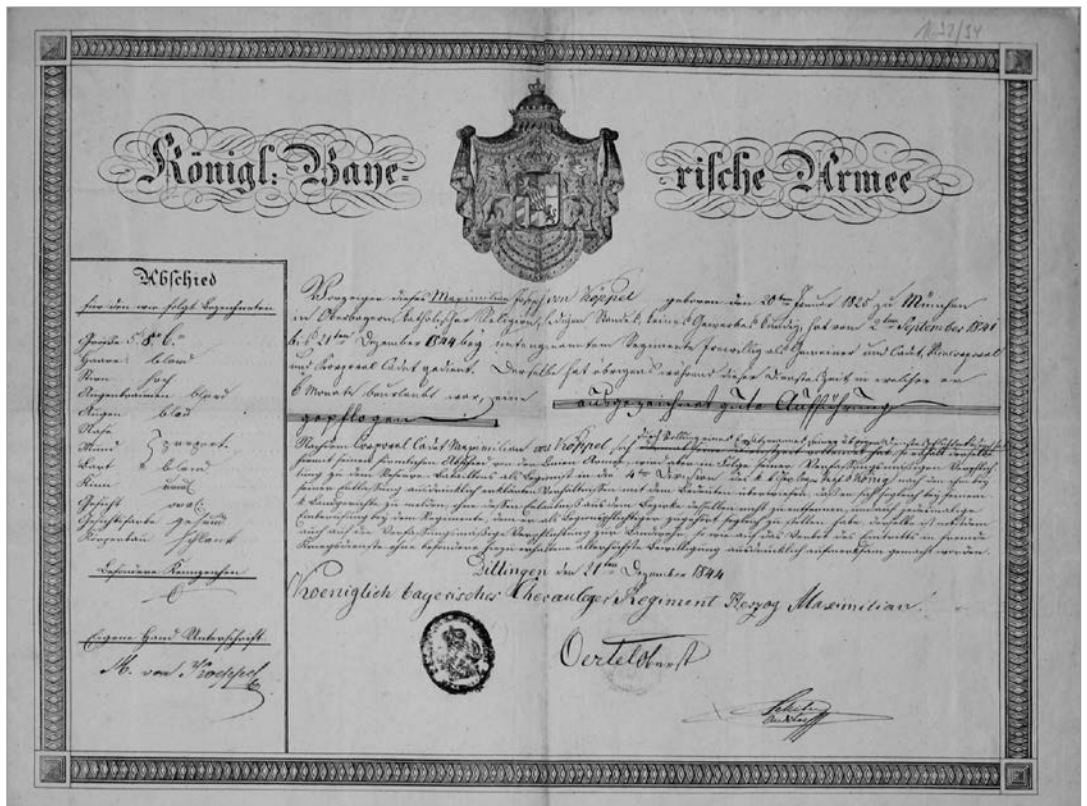 Königl: Baye=
rische Armee
Abschied
für den wie folgt Bezeichneten
Größe 5' 8" 6'''
Haare blond
Stirn hoch
Augenbraunen blond
Augen blau
Nase
Mund } proport.
Bart blond
Kinn rund
Gesicht oval
Gesichtsfarbe gesund
Körperbau schlank
Besondere Kennzeichen
Eigene Hand Unterschrift
M. von Koeppel
Vorzeiger dieses Maximilian Joseph von Köppel geboren den 20ten Januar 1825 zu München
in Oberbayern, katholischer Religion, ledigen Standes, keines Gewerbes kundig, hat vom 2ten September 1841
bis 21ten Dezember 1844 bey untengenanntem Regimente freiwillig als Gemeiner und Cadet, Vicecorporal
und Corporal Cadet gedient. Derselbe hat übrigens während dieser Dienstzeit in welcher er
6 Monate beurlaubt war, eine ausgezeichnet gute Aufführung
gepflogen
Nachdem Corporal Cadet Maximilian von Köppel sich durch Stellung eines Ersatzmannes seiner übrigen Dienstes
hiermit seinen förmlichen Abschied von der Linien Armee, wird aber in Folge seiner Verfassungsmäßigen Verpflich-
tung zu dem Reserve-Bataillons als in die 4te Division des k. Chevaulegers Regts König nach den ihm bey
seiner Entlassung ausdrücklich erklärten Verhältnissen mit dem Bedeuten überwiesen, daß er sich sogleich bey seinem
k. Landgerichte zu melden, ohne dessen Erlaubniß aus dem Bezirke desselben nicht zu entfernen, und auf jedesmalige
Einberufung bey dem Regimente, dem er als zugehört sogleich zu stellen habe, derselbe ist nebstdem
auch auf die Verfassungsmäßige Verpflichtung zur Landwehr, so wie auf das Verbot des Eintritts in fremde
Kriegsdienste ohne besondere hiezu erhaltene allerhöchste Bewilligung ausdrücklich aufmerksam gemacht worden.
Dillingen den 21ten Dezember 1844
Koeniglich bayerisches Chevauleger Regiment Herzog Maximilian.
Oertel Oberst